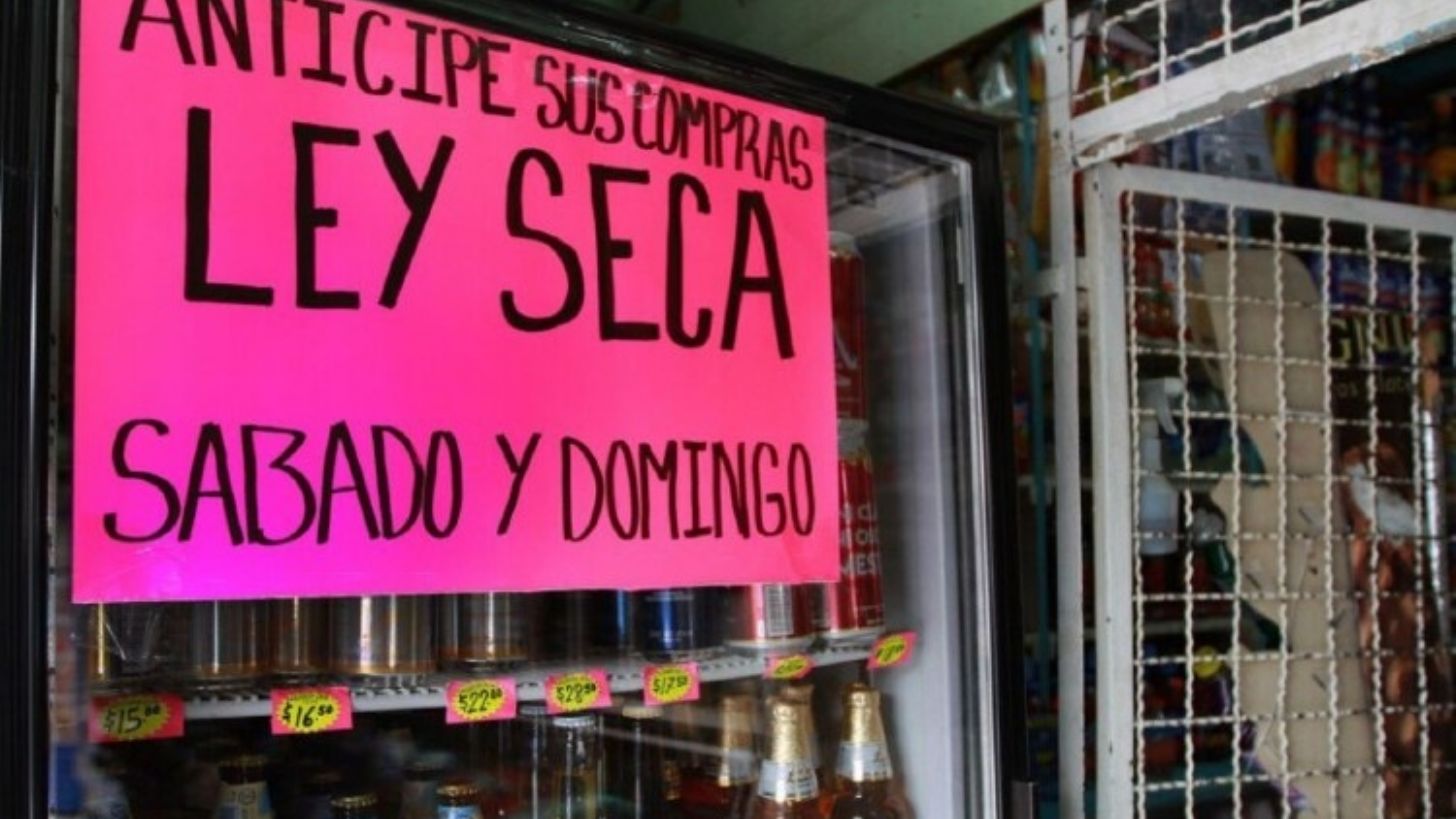 ANTICIPE SUS COMPRAS
LEY SECA
SABADO Y DOMINGO
$15.00
$16.50
$22.00
$28.50
$17.50